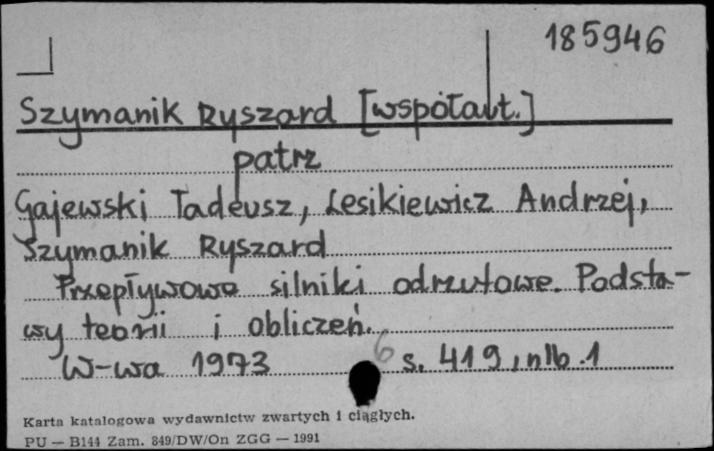 185946
Szymanik Ryszard [współaut.]
patrz
Gajewski Tadeusz, Lesikiewicz Andrzej,
Szymanik Ryszard
Przepływowe silniki odrzutowe. Podsta-
wy teorii i obliczeń.
W-wa 1973 6 s. 419, nlb. 1
Karta katalogowa wydawnictw zwartych i ciągłych.
PU — B144 Zam. 849/DW/On ZGG — 1991